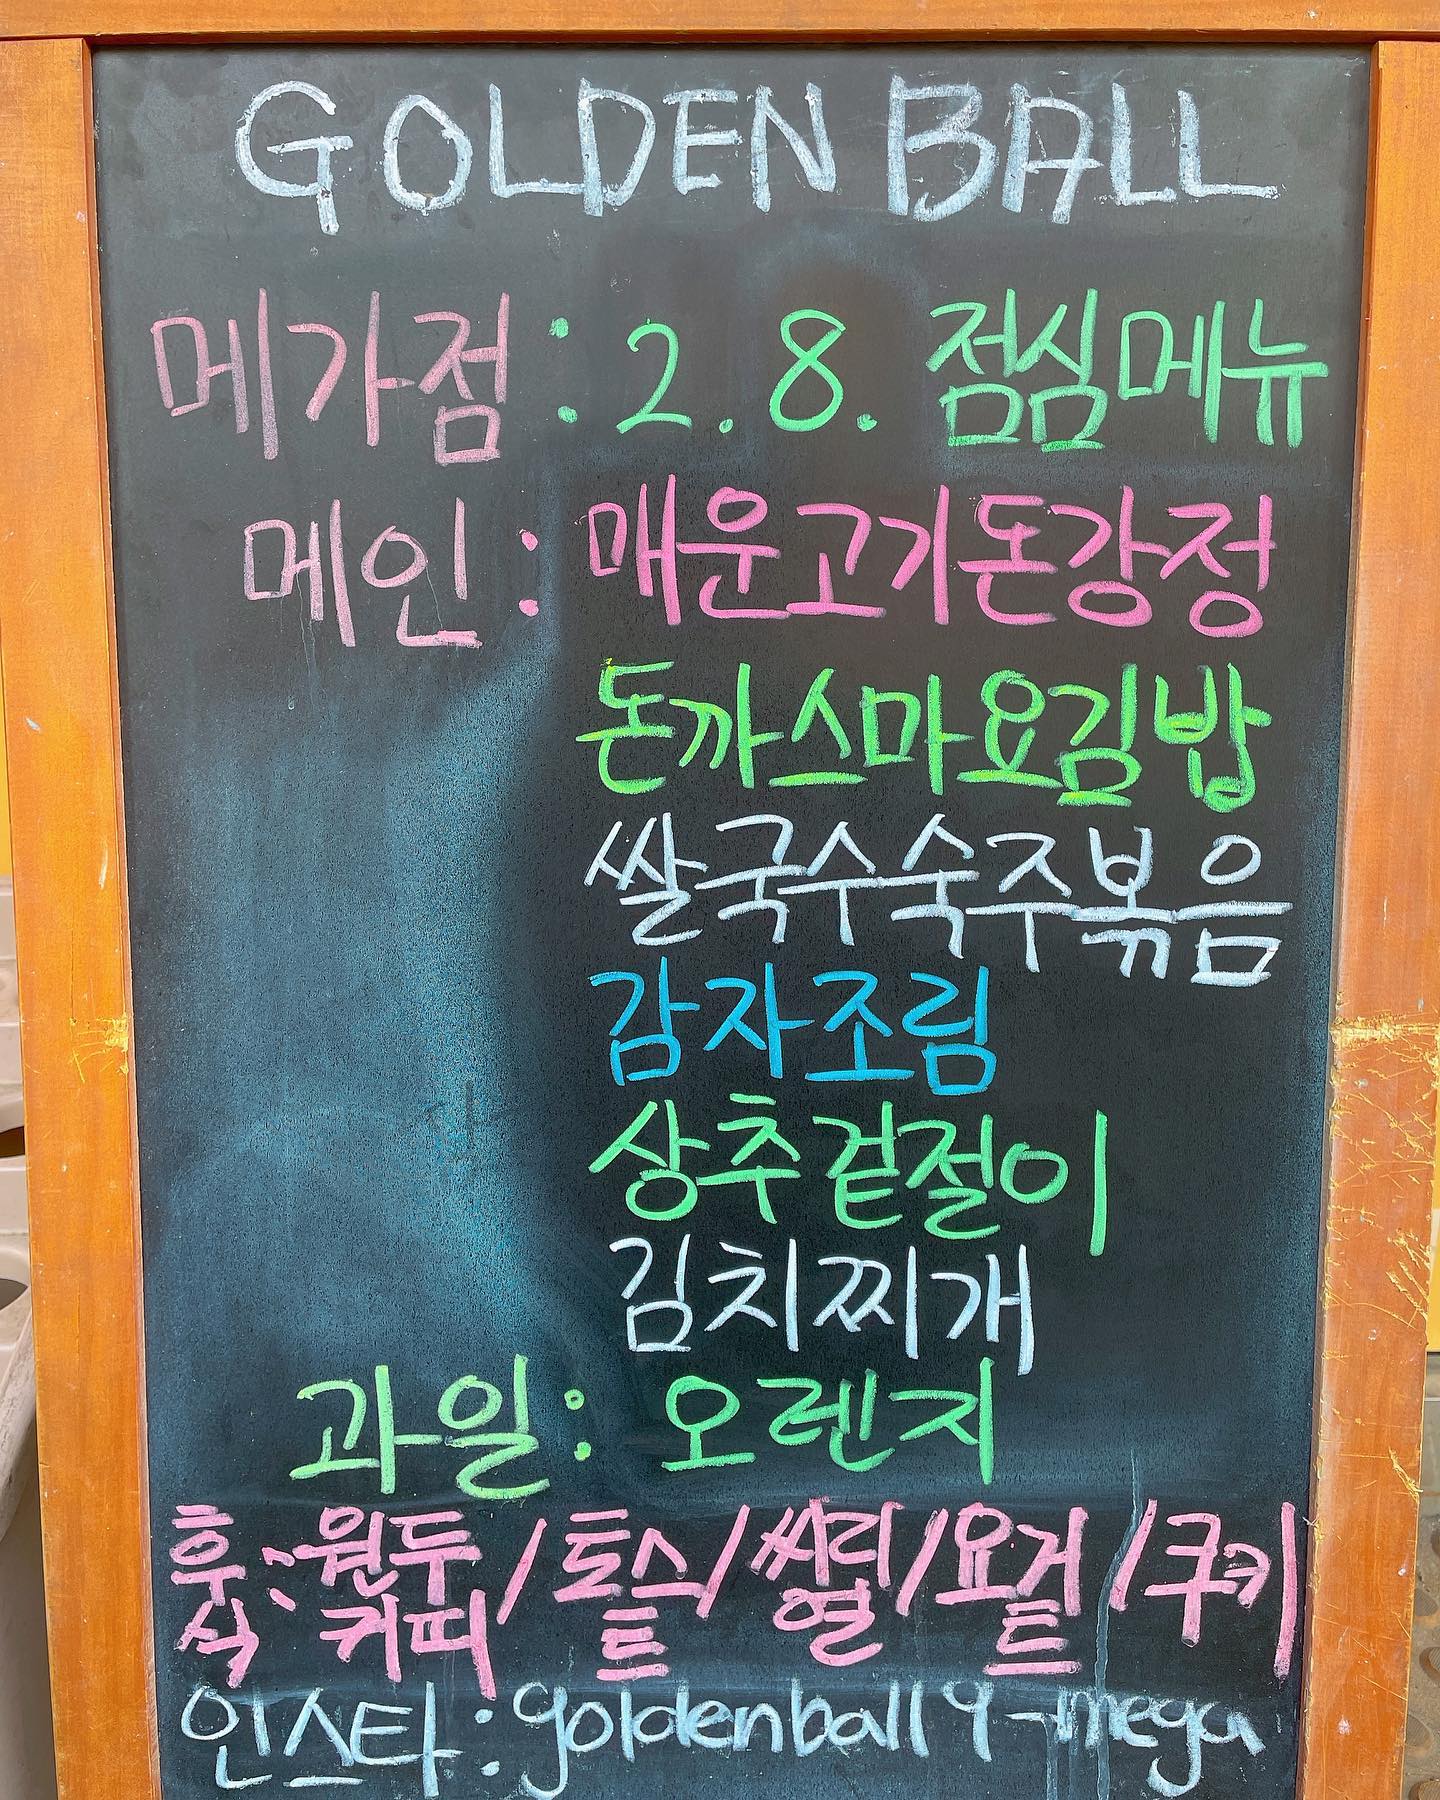 GOLDEN BALL
메가점 : 2.8. 점심메뉴
메인 : 매운고기돈강정
돈까스마요김밥
쌀국수숙주볶음
감자조림
상추겉절이
김치찌개
과일: 오렌지
후식: 원두커피/토스트/씨리얼/요거트/쿠키
인스타: goldenball9_mega